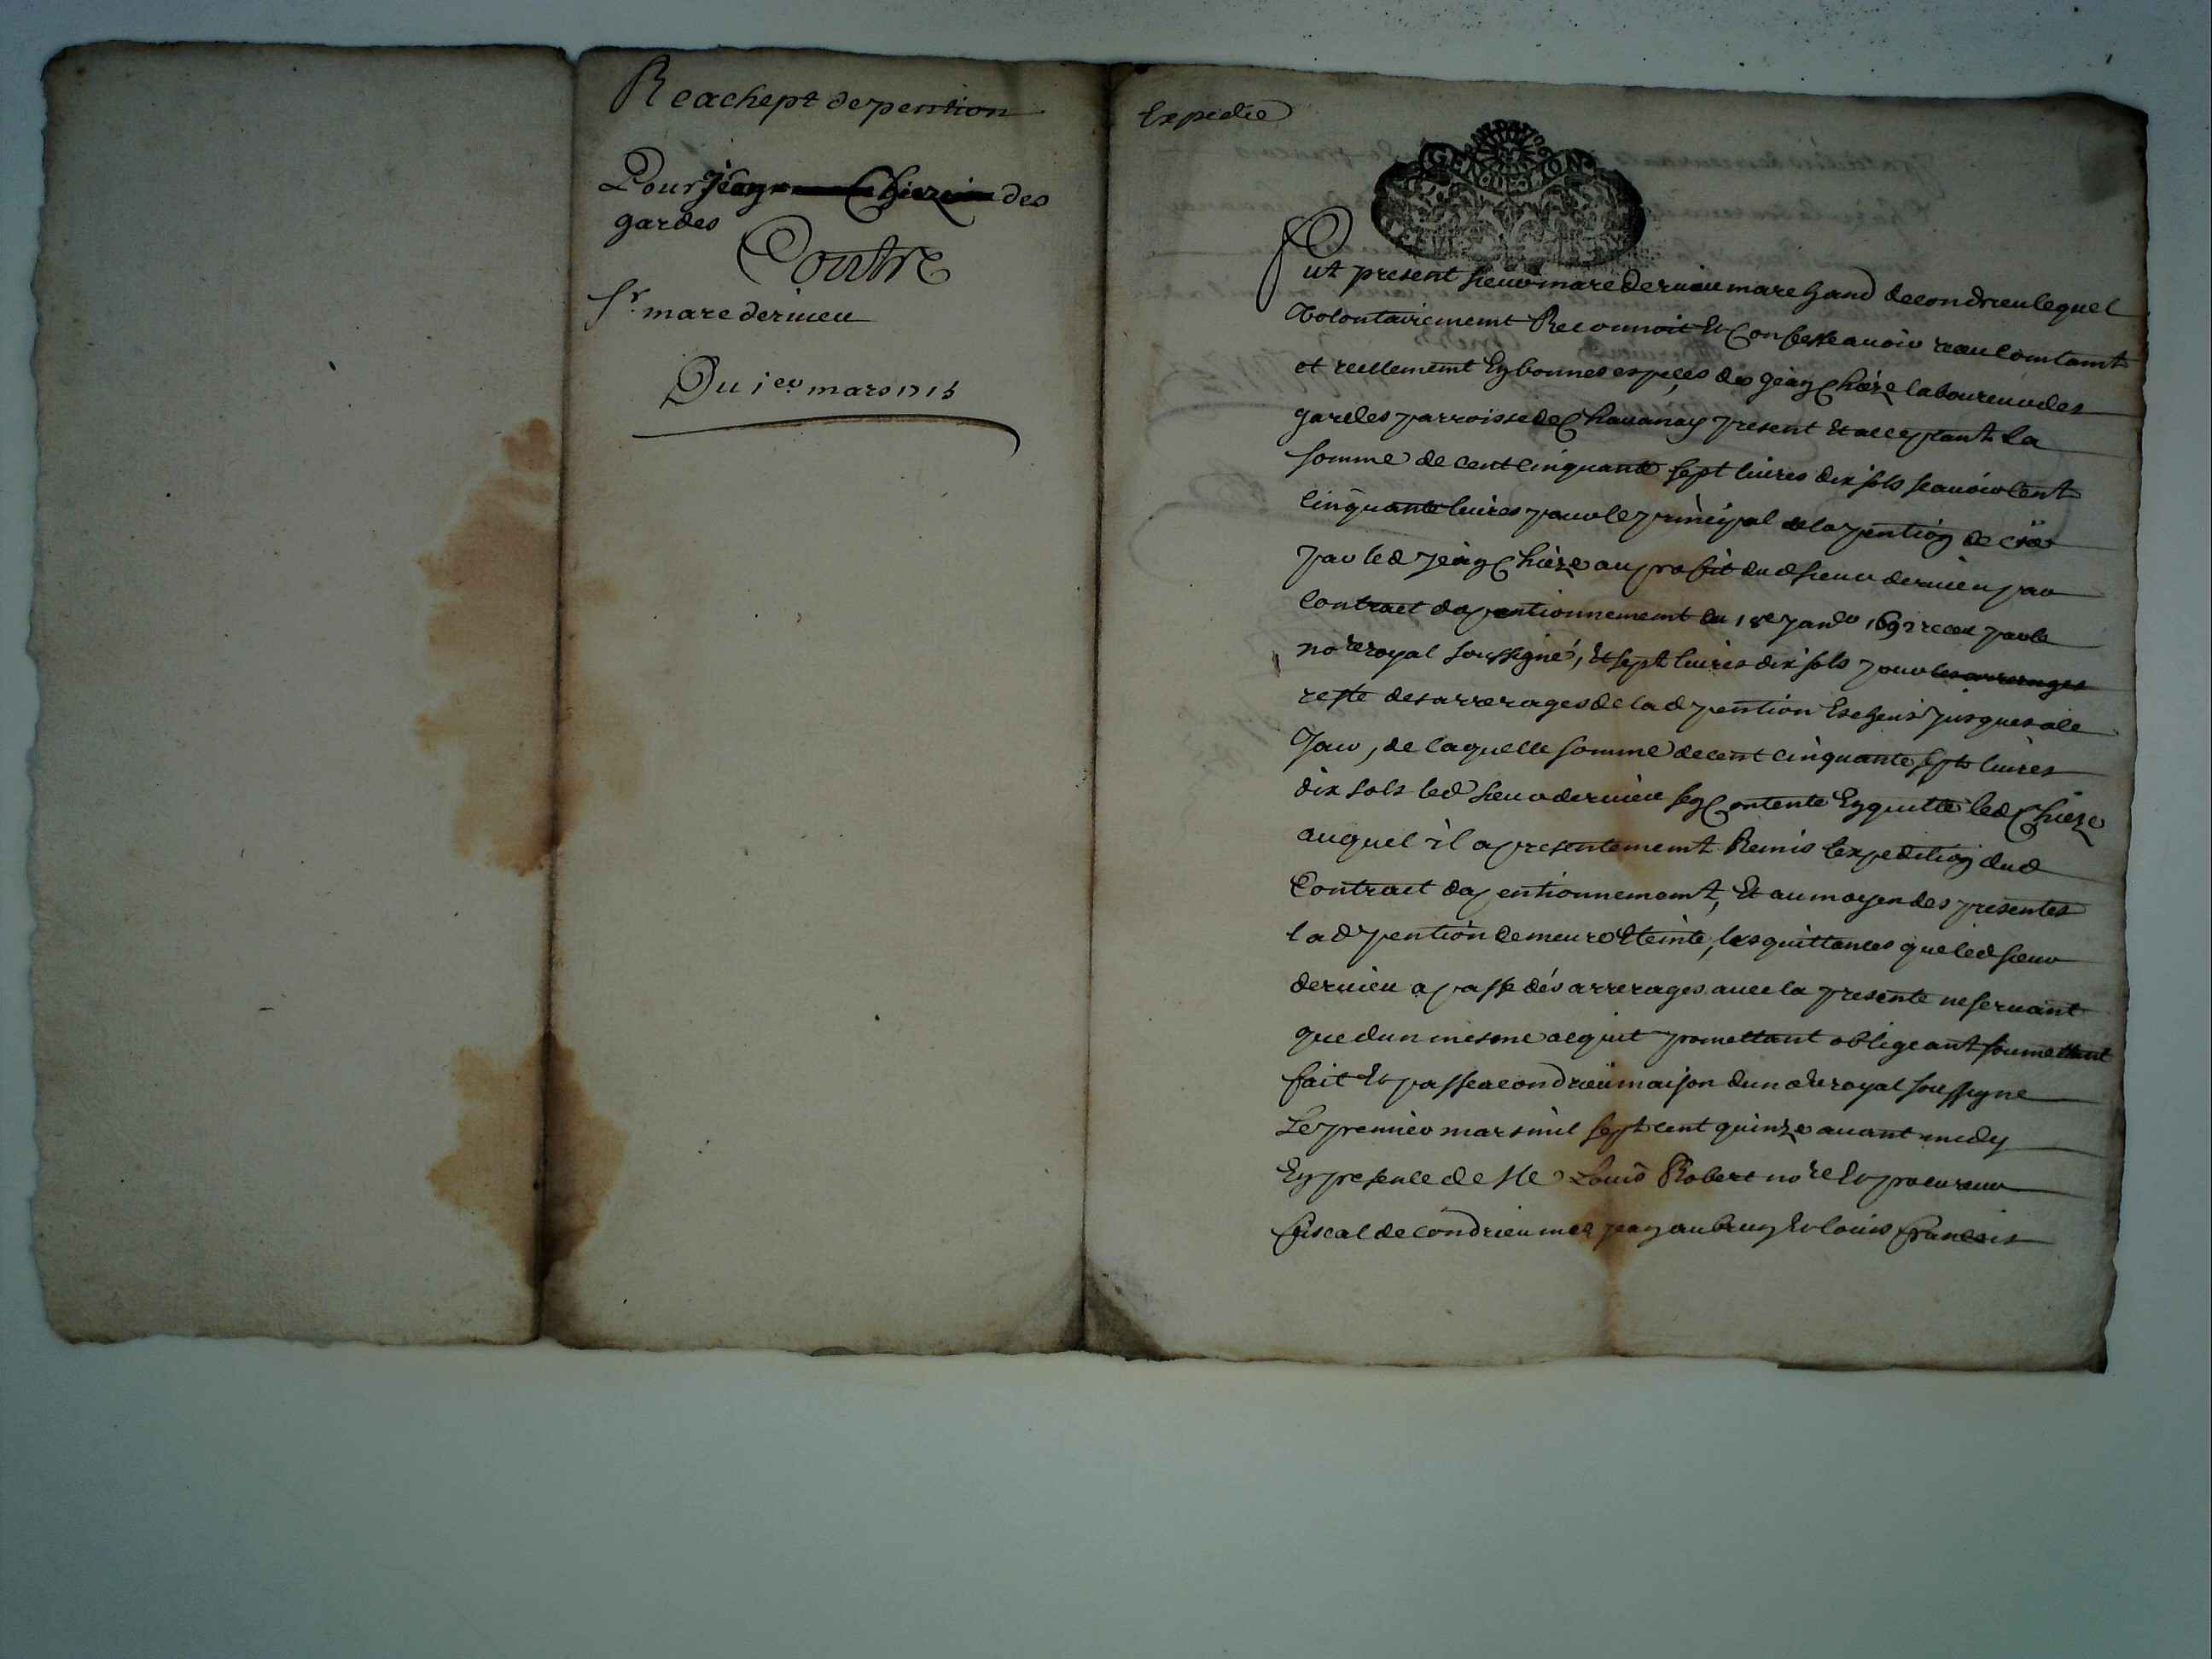 Reachept de pention
Pour jean Chieze des
gardes
Contre
Sr. marc dervieu
Du 1er mars 1715
Expedié
GEN DE LION
Fut present sieur marc dervieu marchand de condrieu lequel
Volontairement Reconnoit Et Confesse avoir receu Comtamt
et reellement En bonnes espèces de jean Chièze laboureur des
gardes parroisse de Chavanay present Et acceptant La
somme de cent cinquante sept livres dix sols scavoir Cent
Cinquante livres pour le principal de la pention de
par led jean Chièze au profit dud sieur dervieu par
Contract dapentionnement du 18e janvr 1692 receu par le
nore royal soussigné, Et sept livres dix sols pour les arrerages
reste des arrerages de lad pention Escheus jusques a ce
Jour, de laquelle somme de cent cinquante sept livres
dix sols led sieur dervieu sen Contente En quitte led Chieze
auquel il a presentement Remis lexpedition dud
Contract dapentionnement, Et au moyen des presentes
lad pention demeure Eteinte, les quittances que led sieur
dervieu a passé dés arrerages avec la presente ne servant
que dun mesme acquit promettant obligeant soumettant
fait Et passé a condrieu maison du nore royal soussigne
Le premier mars mil sept cent quinze avant midy
En presence de Me Louis Robert nore Et procureur
fiscal de Condrieu jean aubrun Et louis francois